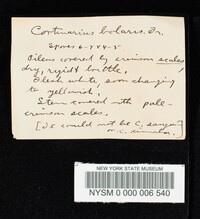 Cortinarius bolaris. Fr.
Spores 6-7 x 4-5
Pileus covered by crimson scales,
dry, rigid & brittle,
Flesh white, soon changing
to yellowish,
Stem covered with pale-
crimson scales.
[It could not be C. sanguin
or C. cinnabar.
NEW YORK STATE MUSEUM
NYSM 0 000 006 540